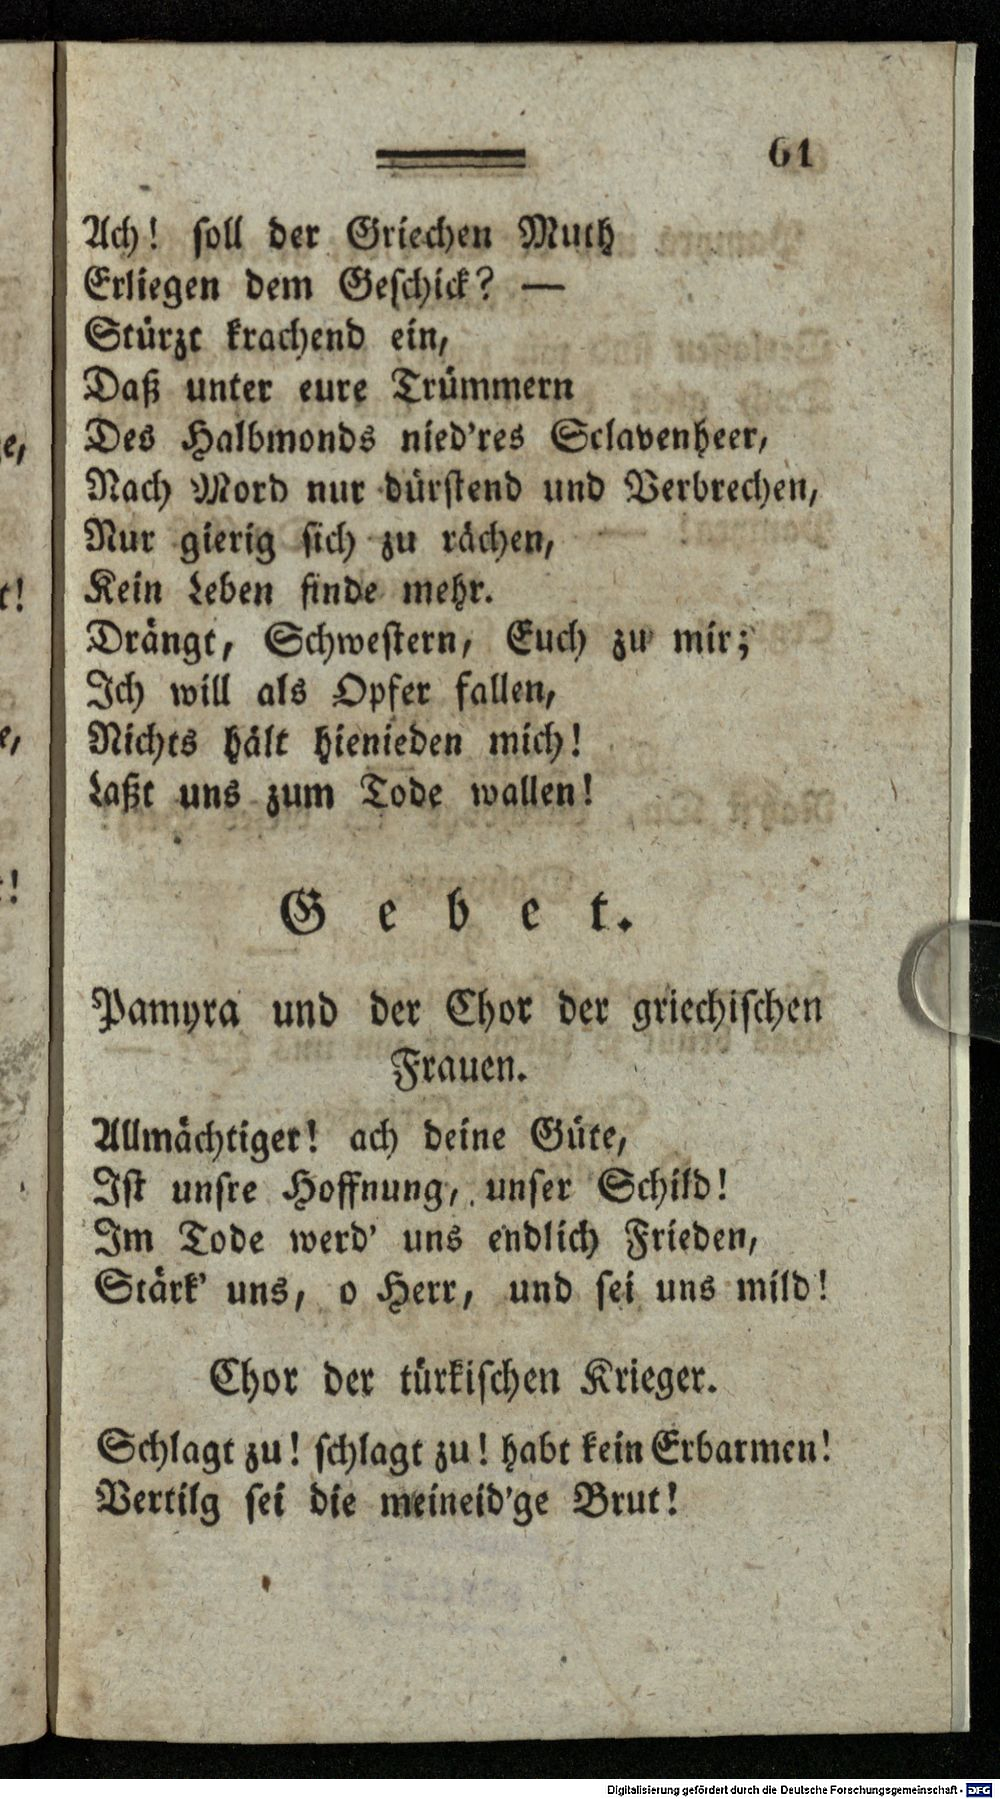 61
Ach! soll der Griechen Muth
Erliegen dem Geschick? —
Stürzt krachend ein,
Daß unter eure Trümmern
Des Halbmonds nied'res Sclavenheer,
Nach Mord nur dürstend und Verbrechen,
Nur gierig sich zu rächen,
Kein Leben finde mehr.
Drängt, Schwestern, Euch zu mir;
Ich will als Opfer fallen,
Nichts hält hienieden mich!
Laßt uns zum Tode wallen!
Gebet.
Pamyra und der Chor der griechischen
Frauen.
Allmächtiger! ach deine Güte,
Ist unsre Hoffnung, unser Schild!
Im Tode werd' uns endlich Frieden,
Stärk' uns, o Herr, und sei uns mild!
Chor der türkischen Krieger.
Schlagt zu! schlagt zu! habt kein Erbarmen!
Vertilg sei die meineid'ge Brut!
Digitalisierung gefördert durch die Deutsche Forschungsgemeinschaft - DFG